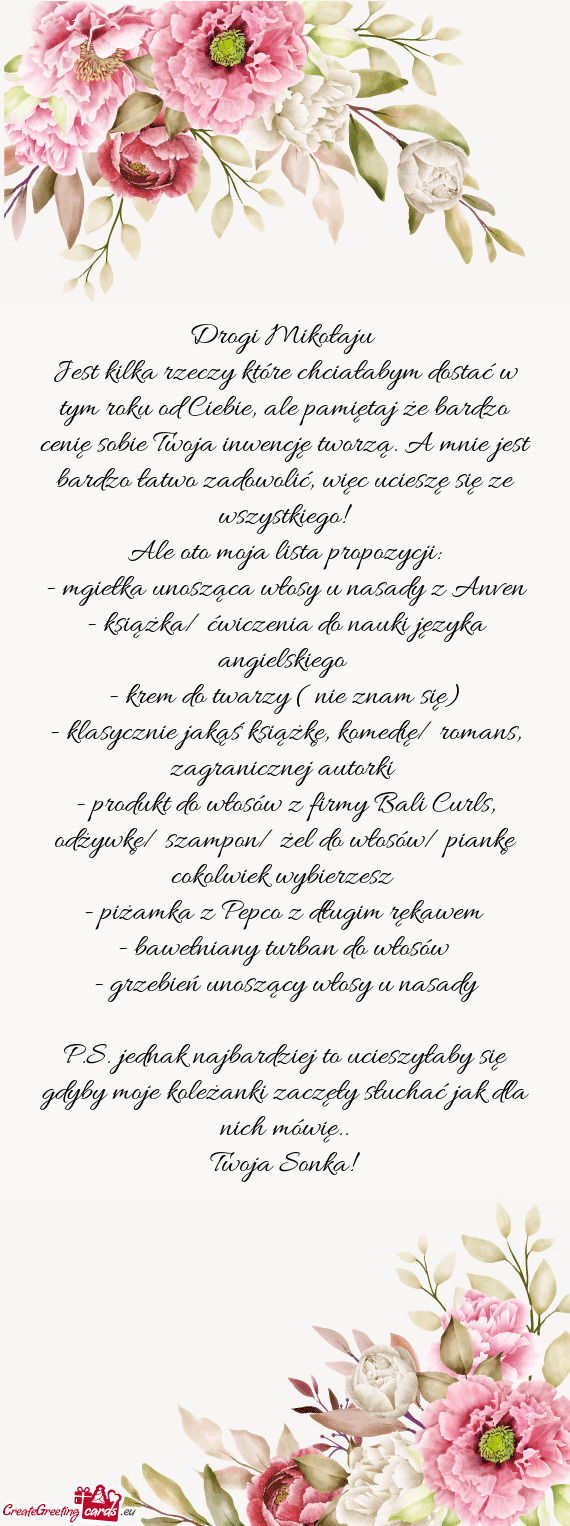 Drogi Mikołaju
Jest kilka rzeczy które chciałabym dostać w
tym roku od Ciebie, ale pamiętaj że bardzo
cenię sobie Twoja inwencję tworzą. A mnie jest
bardzo łatwo zadowolić, więc ucieszę się ze
wszystkiego!
Ale oto moja lista propozycji:
- mgiełka unosząca włosy u nasady z Anven
- książka/ ćwiczenia do nauki języka
angielskiego
- krem do twarzy ( nie znam się)
- klasycznie jakąś książkę, komedię/ romans,
zagranicznej autorki
- produkt do włosów z firmy Bali Curls,
odżywkę/ szampon/ żel do włosów/ piankę
cokolwiek wybierzesz
- piżamka z Pepco z długim rękawem
- bawełniany turban do włosów
- grzebień unoszący włosy u nasady

P.S. jednak najbardziej to ucieszyłaby się
gdyby moje koleżanki zaczęły słuchać jak dla
nich mówię..
Twoja Sonka!
CreateGreeting cards .eu